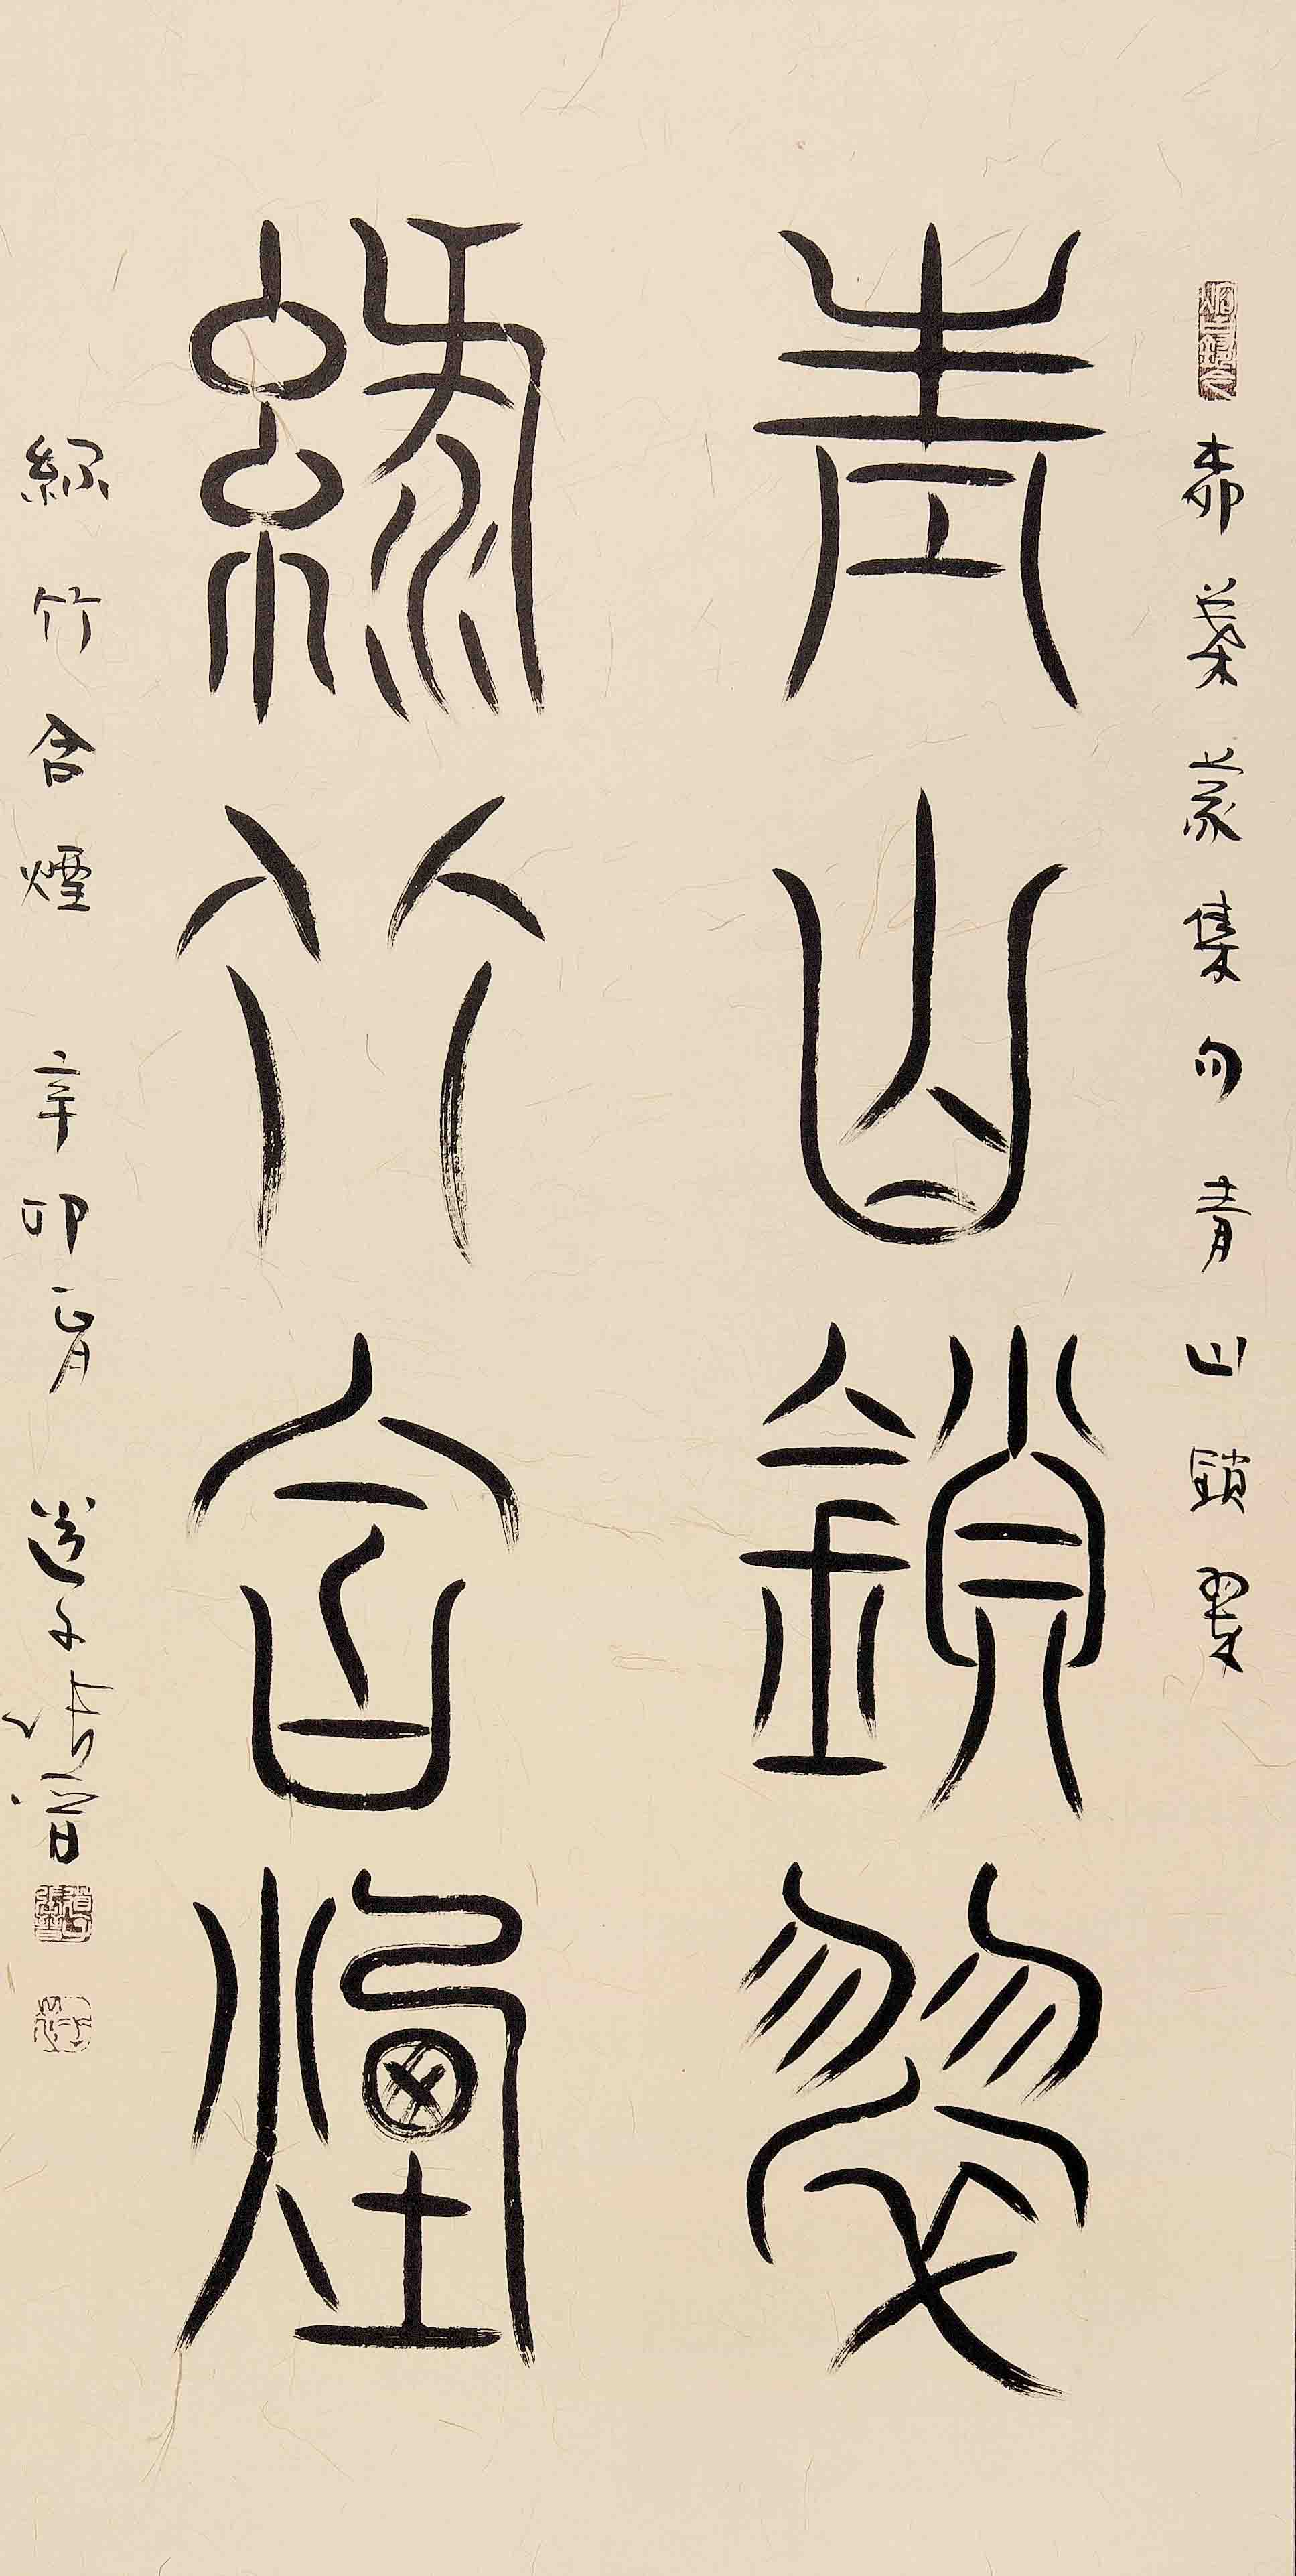 集句青山鎖翠
青山鎖翠
綠竹含煙
綠竹含煙 辛卯正月